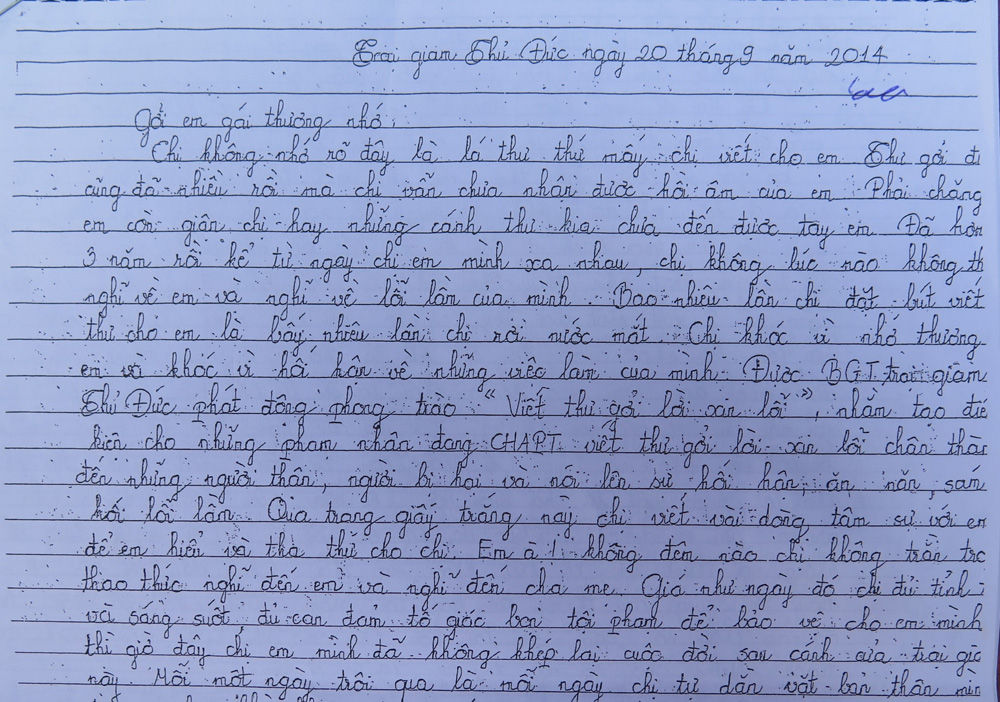 Trại giam Thủ Đức ngày 20 tháng 9 năm 2014
Gởi em gái thương nhớ:
Chị không nhớ rõ đây là lá thư thứ mấy chị viết cho em Thư gởi đi
cũng đã nhiều rồi mà chị vẫn chưa nhận được hồi âm của em Phải chăng
em còn giận chị hay những cánh thư kia chưa đến được tay em Đã hơn
3 năm rồi kể từ ngày chị em mình xa nhau, chị không lúc nào không th
nghĩ về em và nghĩ về lỗi lầm của mình. Bao nhiêu lần chị đặt bút viết
thư cho em là bấy nhiêu lần chị rơi nước mắt. Chị khóc vì nhớ thương
em và khóc vì hối hận về những việc làm của mình. Được BGT trại giam
Thủ Đức phát động phong trào "Viết thư gởi lời xin lỗi", nhằm tạo điề
kiện cho những phạm nhân đang CHAPT viết thư gởi lời xin lỗi chân thàn
đến những người thân, người bị hại và nói lên sự hối hận, ăn năn, sám
hối lỗi lầm. Qua trang giấy trắng này chị viết vài dòng tâm sự với em
để em hiểu và tha thứ cho chị. Em à! không đêm nào chị không trằn trọ
thao thức nghĩ đến em và nghĩ đến cha mẹ. Giá như ngày đó chị đủ tỉnh
và sáng suốt, đủ can đảm tố giác bọn tội phạm để bảo vệ cho em mình
thì giờ đây chị em mình đã không khép lại cuộc đời sau cánh cửa trại gia
này. Mỗi một ngày trôi qua là mỗi ngày chị tự dằn vặt bản thân mìn